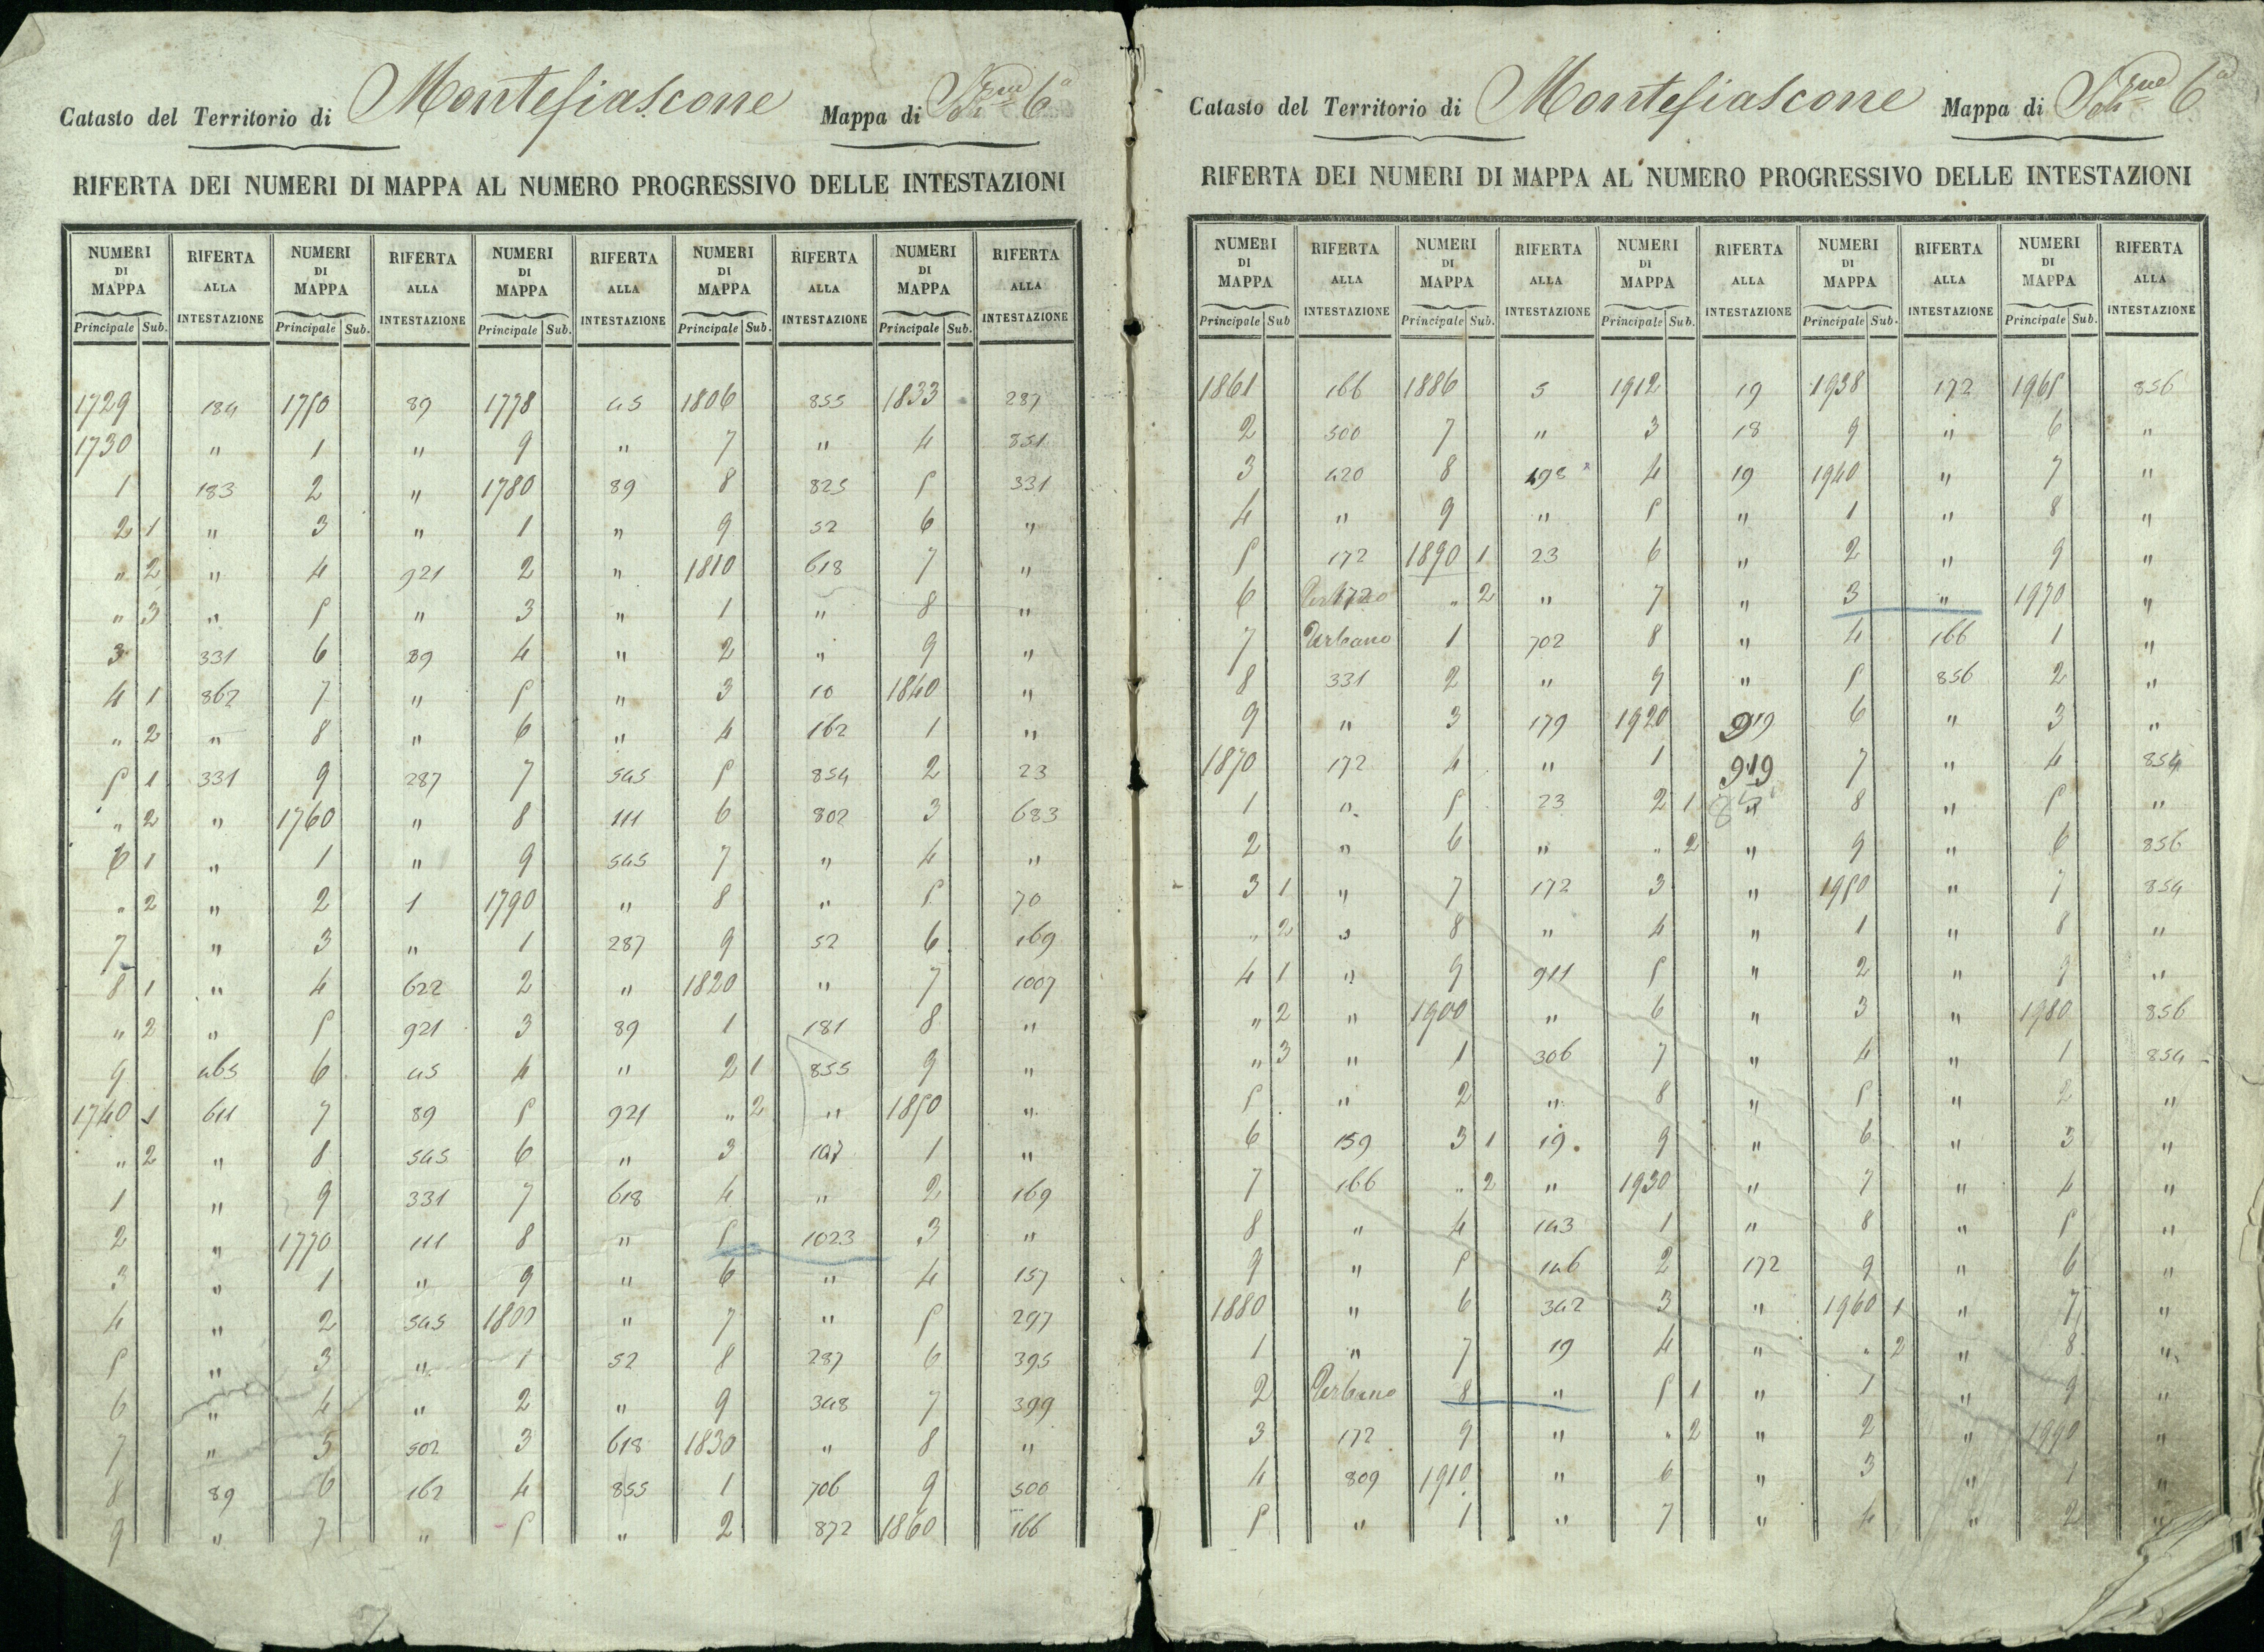 Catasto del Territorio di Montefiascone Mappa di Sez.ne 6a
RIFERTA DEI NUMERI DI MAPPA AL NUMERO PROGRESSIVO DELLE INTESTAZIONI
NUMERI DI MAPPA RIFERTA ALLA INTESTAZIONE NUMERI DI MAPPA RIFERTA ALLA INTESTAZIONE NUMERI DI MAPPA RIFERTA ALLA INTESTAZIONE NUMERI DI MAPPA RIFERTA ALLA INTESTAZIONE NUMERI DI MAPPA RIFERTA ALLA INTESTAZIONE
Principale Sub. Principale Sub. Principale Sub. Principale Sub. Principale Sub.
1729 184 1750 89 1778 45 1806 855 1833 287
1730 " 1 " 9 " 7 " 4 851
1 183 2 " 1780 89 8 825 5 331
2 1 " 3 " 1 " 9 52 6 "
" 2 " 4 921 2 " 1810 618 7 "
" 3 " 5 " 3 " 1 " 8 "
3 331 6 89 4 " 2 " 9 "
4 1 862 7 " 5 " 3 10 1840 "
" 2 " 8 " 6 " 4 162 1 "
5 1 331 9 287 7 545 5 854 2 23
" 2 " 1760 " 8 111 6 802 3 683
6 1 " 1 " 9 545 7 " 4 "
" 2 " 2 1 1790 " 8 " 5 70
7 " 3 " 1 287 9 52 6 169
8 1 " 4 622 2 " 1820 " 7 1007
" 2 " 5 921 3 89 1 181 8 "
9 465 6 45 4 " 2 1 855 9 "
1740 1 611 7 89 5 921 " 2 " 1850 "
" 2 " 8 545 6 " 3 1 "
1 " 9 331 7 618 4 " 2 169
2 " 1770 111 8 " 5 1023 3 "
3 " 1 " 9 " 6 " 4 157
4 " 2 545 1800 " 7 " 5 297
5 " 3 " 1 52 8 287 6 395
6 " 4 " 2 " 9 348 7 399
7 " 5 502 3 618 1830 " 8 "
8 89 6 162 4 855 1 706 9 500
9 " 7 " 5 " 2 872 1860 166
Catasto del Territorio di Montefiascone Mappa di Sez.ne 6a
RIFERTA DEI NUMERI DI MAPPA AL NUMERO PROGRESSIVO DELLE INTESTAZIONI
NUMERI DI MAPPA RIFERTA ALLA INTESTAZIONE NUMERI DI MAPPA RIFERTA ALLA INTESTAZIONE NUMERI DI MAPPA RIFERTA ALLA INTESTAZIONE NUMERI DI MAPPA RIFERTA ALLA INTESTAZIONE NUMERI DI MAPPA RIFERTA ALLA INTESTAZIONE
Principale Sub Principale Sub. Principale Sub. Principale Sub. Principale Sub.
1861 166 1886 5 1912 19 1938 172 1965 856
2 500 7 " 3 18 9 " 6 "
3 420 8 498 4 19 1940 " 7 "
4 " 9 " 5 " 1 " 8 "
5 172 1890 1 23 6 " 2 " 9 "
6 172 " 2 " 7 " 3 " 1970 "
7 Urbano 1 702 8 " 4 166 1 "
8 331 2 " 9 " 5 856 2 "
9 " 3 179 1920 919 6 " 3 "
1870 172 4 " 1 919 7 " 4 854
1 " 5 23 2 1 8 " 5 "
2 " 6 " " 2 " 9 " 6 856
3 1 " 7 172 3 " 1950 " 7 854
" 2 " 8 " 4 " 1 " 8 "
4 1 " 9 911 5 " 2 " 9 "
" 2 " 1900 " 6 " 3 " 1980 856
" 3 " 1 306 7 " 4 " 1 854
5 " 2 " 8 " 5 " 2 "
6 159 3 1 19 9 " 6 " 3 "
7 166 " 2 " 1930 " 7 " 4 "
8 " 4 143 1 " 8 " 5 "
9 " 5 146 2 172 9 " 6 "
1880 " 6 342 3 " 1960 1 " 7 "
1 " 7 19 4 " " 2 " 8 "
2 Urbano 8 " 5 1 " 1 " 9 "
3 172 9 " " 2 " 2 " 1990 "
4 809 1910 " 6 " 3 " 1 "
5 " 1 " 7 " 4 " 2 "